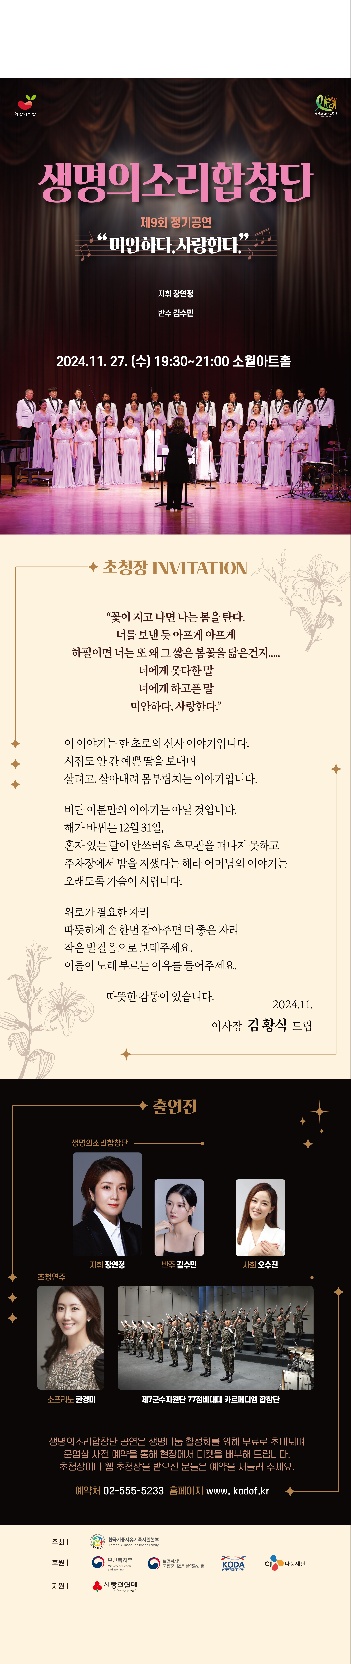 생명의소리합창단
제9회 정기공연
“미안하다, 사랑한다.”
지휘 장연정
반주 김수민
2024.11. 27. (수) 19:30~21:00 소월아트홀
초청장 INVITATION
“꽃이 지고 나면 나는 봄을 탄다.
너를 보낸 듯 아프게 아프게
하필이면 너는 또 왜 그 짧은 봄꽃을 닮은건지.....
너에게 못다한 말
너에게 하고픈 말
미안하다, 사랑한다.”
이 이야기는 한 초로의 신사 이야기입니다.
시집도 안 간 예쁜 딸을 보내며
살려고, 살아내려 몸부림치는 이야기입니다.
비단 이분만의 이야기는 아닐 것입니다.
해가 바뀌는 12월 31일,
혼자 있는 딸이 안쓰러워 추모관을 떠나지 못하고
주차장에서 밤을 지샜다는 혜라 어머님의 이야기는
오래토록 가슴이 시립니다.
위로가 필요한 자리
따뜻하게 손 한번 잡아주면 더 좋은 자리
작은 발걸음으로 보태주세요.
이들이 노래 부르는 이유를 들어주세요.
따뜻한 감동이 있습니다.
2024.11.
이사장 김황식 드림
출연진
생명의소리합창단
지휘 장연정
반주 김수민
사회 오수진
초청연주
소프라노 권경미
제7군수지원단 77정비대대 카르페디엠 합창단
생명의소리합창단 공연은 생명나눔 활성화를 위해 무료로 초대되며
운영상 사전 예약을 통해 현장에서 티켓을 배부해 드립니다.
초청장이나 웹 초청장을 받으신 분들은 예약을 서둘러 주세요.
예약처 02-555-5233 홈페이지 www. kodof.kr
주최 |
후원 | 보건복지부 KODA CJ나눔재단
지원 | 사랑의열매